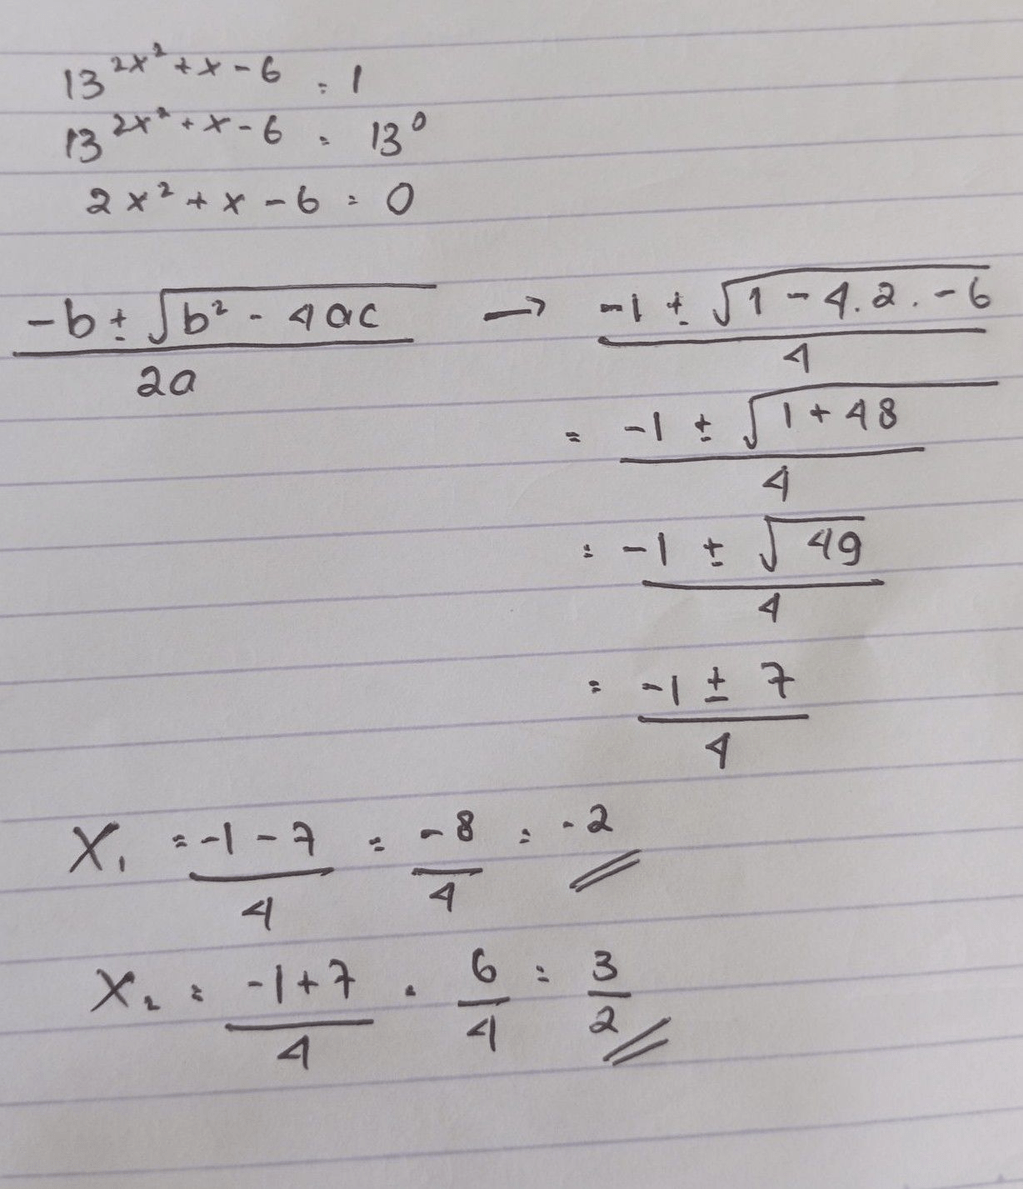 13^{2x²+x-6} = 1
13^{2x²+x-6} = 13⁰
2x²+x-6 = 0
\frac{-b ± √(b² - 4ac)}{2a} → \frac{-1 ± √(1-4.2.-6)}{4}
= \frac{-1 ± √(1+48)}{4}
= \frac{-1 ± √49}{4}
= \frac{-1 ± 7}{4}
X₁ = \frac{-1-7}{4} = \frac{-8}{4} = -2
X₂ = \frac{-1+7}{4} = \frac{6}{4} = \frac{3}{2}